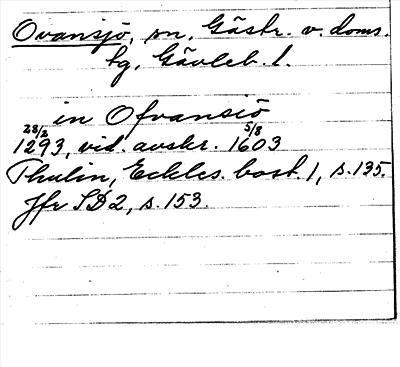 Ovansjö, sn, Gästr. v. doms.
tg, Gävleb. l.
in Ofvansiö
28/2 5/8
1293, vid. avskr. 1603
Thulin, Eckles. bost. 1, s. 135.
Jfr SD 2, s. 153.